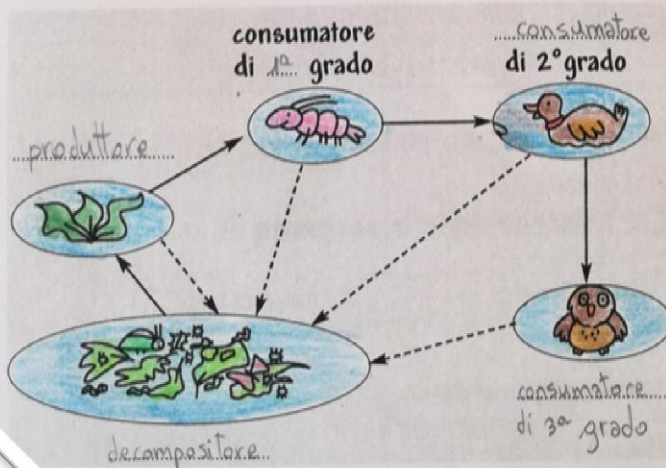 consumatore
di 1ª grado
consumatore
di 2° grado
produttore
consumatore
di 3ª grado
decompositore